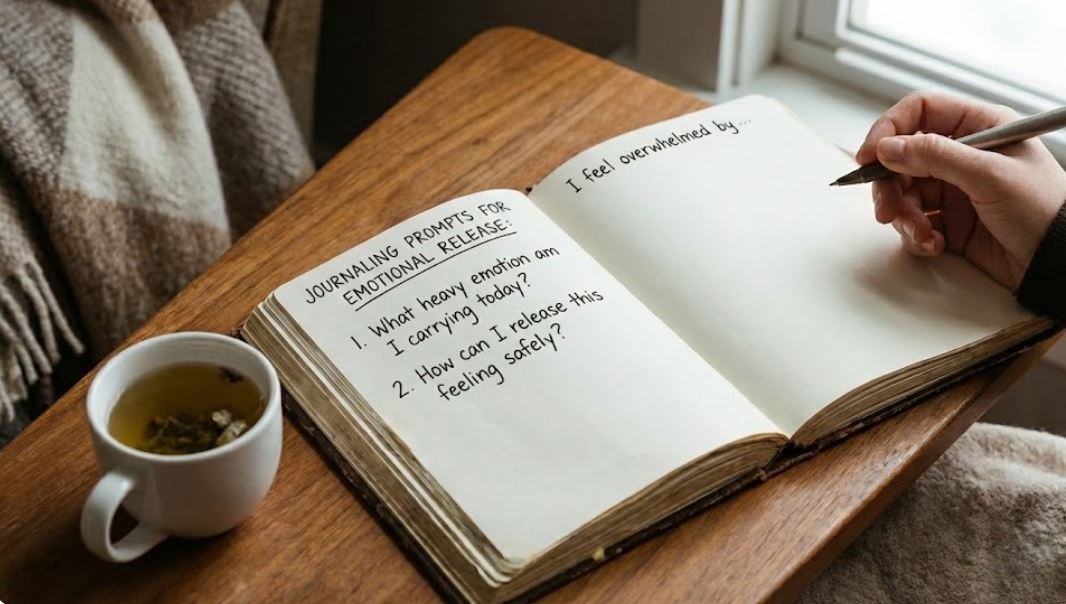 JOURNALING PROMPTS FOR
EMOTIONAL RELEASE:
1. What heavy emotion am
I carrying today?
2. How can I release this
feeling safely?
I feel overwhelmed by...